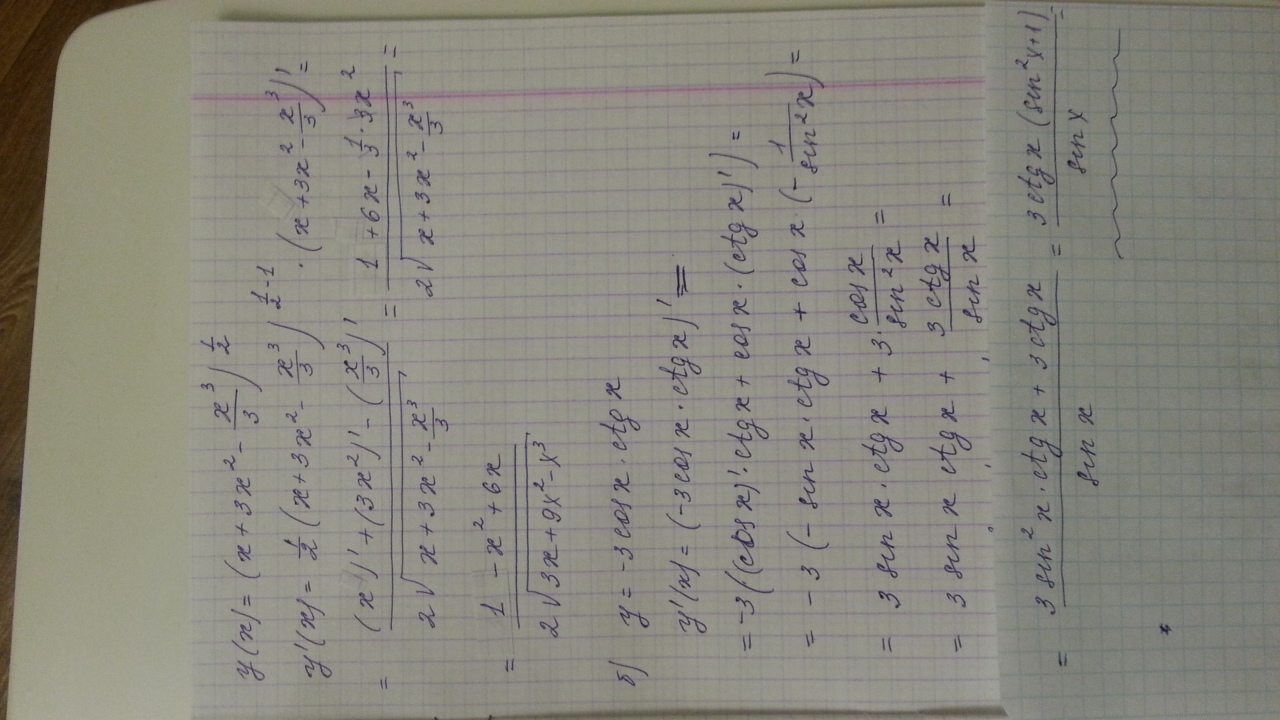 y(x) = (x + 3x² - x³/3)^(1/2)
y'(x) = 1/2 (x + 3x² - x³/3)^(1/2 - 1) · (x + 3x² - x³/3)' =
= ((x)' + (3x²)' - (x³/3)') / (2√(x + 3x² - x³/3)) = (1 + 6x - 1/3 · 3x²) / (2√(x + 3x² - x³/3)) =
= (1 - x² + 6x) / (2√(3x + 9x² - x³))
б) y = -3 cos x · ctg x
y'(x) = (-3 cos x · ctg x)' =
= -3((cos x)' · ctg x + cos x · (ctg x)') =
= -3 (- sin x · ctg x + cos x · (- 1/sin² x) =
= 3 sin x · ctg x + 3 · cos x / sin² x =
= 3 sin x ctg x + 3 ctg x / sin x =
= (3 sin² x · ctg x + 3 ctg x) / sin x = 3 ctg x (sin² x + 1) / sin x =